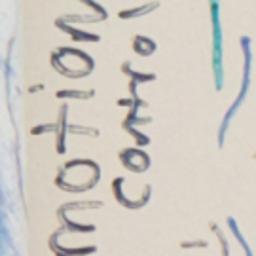 motion
contro